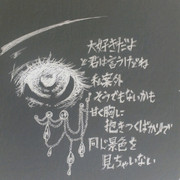 大好きだよ
と君は言うけどね
私案外
そうでもないかも
甘く胸に
抱きつくばかりで
同じ景色を
見ちゃいない